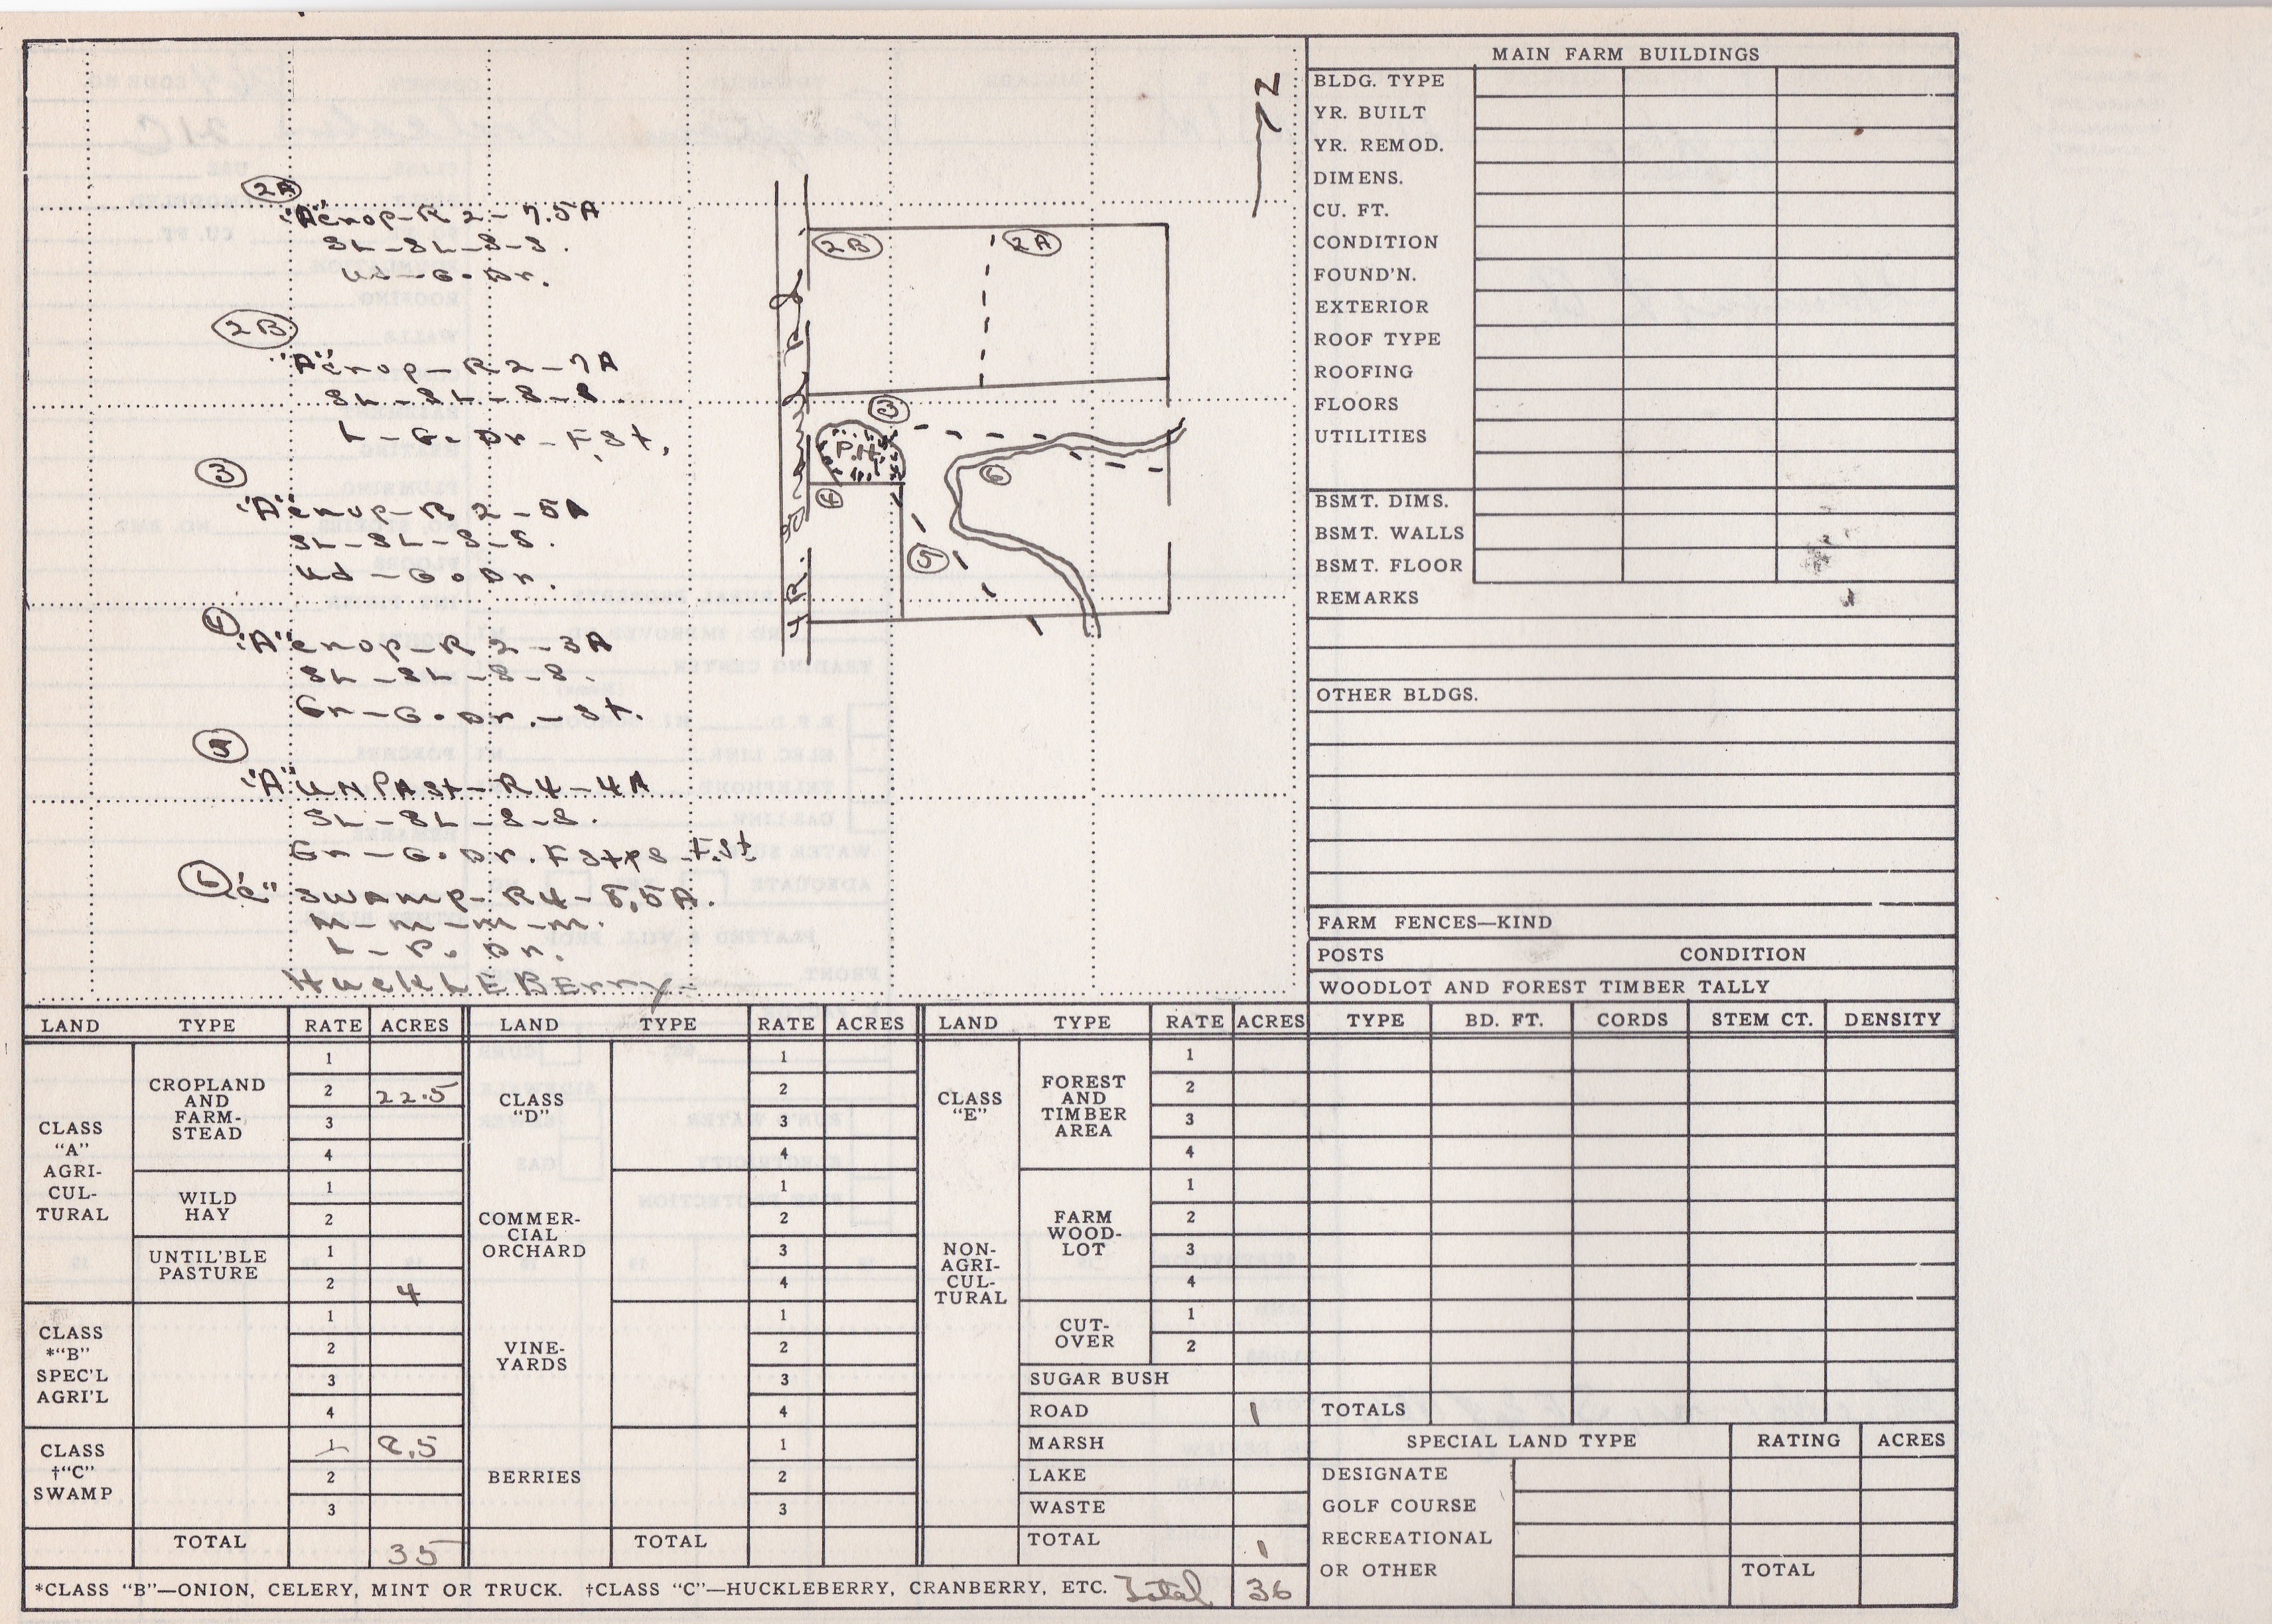 2A
"A" crop-R2-7.5A
SL-SL-S-S.
Ud-G.Dr.
2B
"A" crop-R2-7A
SL-SL-S-S.
L-G.Dr-F.St.
3
"A" crop-R2-5A
SL-SL-S-S.
Ud-G.Dr.
4
"A" crop-R2-3A
SL-SL-S-S.
Gr-G.Dr.-St.
5
"A" UNPAst-R4-4A
SL-SL-S-S.
Gr-G.Dr. F.St.
6 "C" Swamp-R4-8.5A.
M-M-M-M.
L-P.Dr.
HuckLEBErry-
N
2B 2A
3
P.H.
4
5
6
T.R.
MAIN FARM BUILDINGS
BLDG. TYPE
YR. BUILT
YR. REMOD.
DIMENS.
CU. FT.
CONDITION
FOUND'N.
EXTERIOR
ROOF TYPE
ROOFING
FLOORS
UTILITIES
BSMT. DIMS.
BSMT. WALLS
BSMT. FLOOR
REMARKS
OTHER BLDGS.
FARM FENCES—KIND
POSTS CONDITION
WOODLOT AND FOREST TIMBER TALLY
TYPE BD. FT. CORDS STEM CT. DENSITY
TOTALS
SPECIAL LAND TYPE RATING ACRES
DESIGNATE
GOLF COURSE
RECREATIONAL
OR OTHER TOTAL
LAND TYPE RATE ACRES
CLASS
"A"
AGRI-
CUL-
TURAL
CROPLAND
AND
FARM-
STEAD
1
2 22.5
3
4
WILD
HAY
1
2
UNTIL'BLE
PASTURE
1
2 4
CLASS
*"B"
SPEC'L
AGRI'L
1
2
3
4
CLASS
†"C"
SWAMP
1 8.5
2
3
TOTAL 35
LAND TYPE RATE ACRES
CLASS
"D"
1
2
3
4
COMMER-
CIAL
ORCHARD
1
2
3
4
VINE-
YARDS
1
2
3
4
BERRIES
1
2
3
TOTAL
LAND TYPE RATE ACRES
CLASS
"E"
NON-
AGRI-
CUL-
TURAL
FOREST
AND
TIMBER
AREA
1
2
3
4
FARM
WOOD-
LOT
1
2
3
4
CUT-
OVER
1
2
SUGAR BUSH
ROAD 1
MARSH
LAKE
WASTE
TOTAL 1
*CLASS "B"—ONION, CELERY, MINT OR TRUCK. †CLASS "C"—HUCKLEBERRY, CRANBERRY, ETC. Total 36